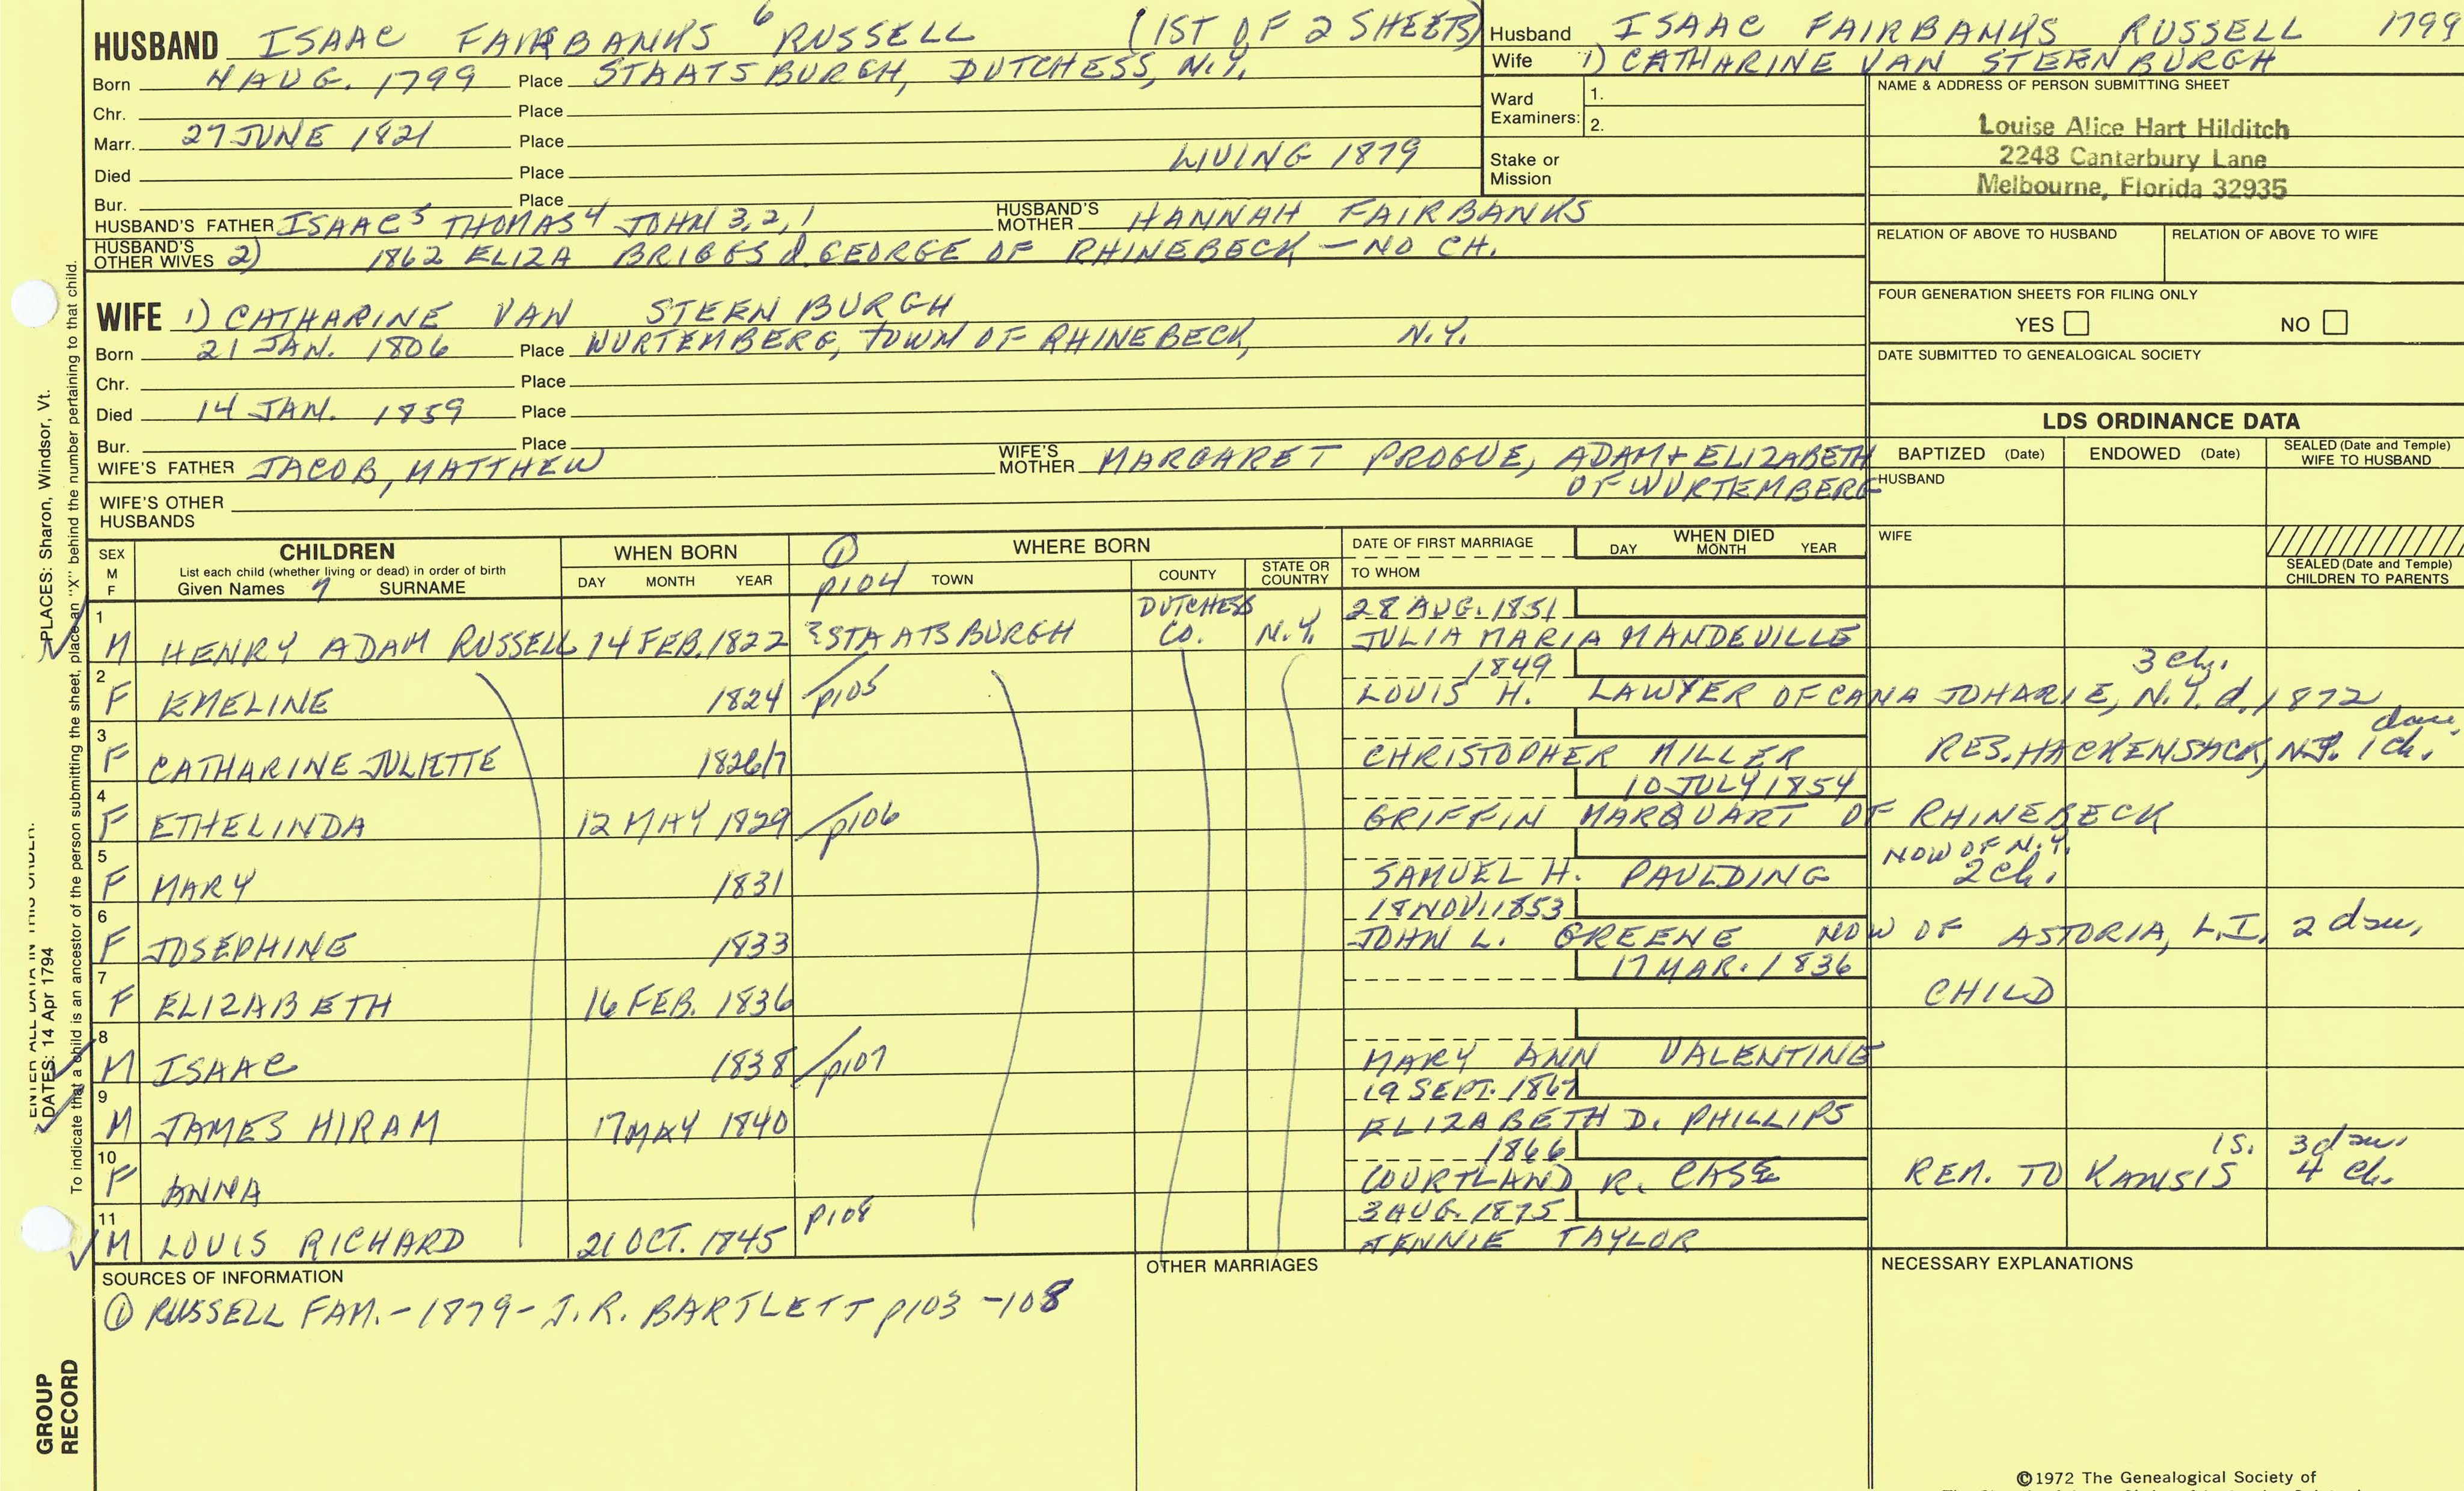 HUSBAND ISAAC FAIRBANKS 6 RUSSELL (1ST OF 2 SHEETS)
Born 4 AUG. 1799 Place STAATSBURGH, DUTCHESS, N.Y.
Chr. Place
Marr. 27 JUNE 1821 Place
Died Place LIVING 1879
Bur. Place
HUSBAND'S FATHER ISAAC 5 THOMAS 4 JOHN 3, 2, 1 HUSBAND'S MOTHER HANNAH FAIRBANKS
HUSBAND'S OTHER WIVES 2) 1862 ELIZA BRIGGS d. GEORGE OF RHINEBECK - NO CH.
WIFE 1) CATHARINE VAN STEENBURGH
Born 21 JAN. 1806 Place WURTEMBERG, TOWN OF RHINEBECK, N.Y.
Chr. Place
Died 14 JAN. 1859 Place
Bur. Place
WIFE'S FATHER JACOB, MATTHEW WIFE'S MOTHER MARGARET PROGUE, ADAM + ELIZABETH
OF WURTEMBERG
WIFE'S OTHER HUSBANDS
Husband ISAAC FAIRBANKS RUSSELL 1799
Wife 1) CATHARINE VAN STEENBURGH
Ward Examiners: 1.
2.
Stake or Mission
NAME & ADDRESS OF PERSON SUBMITTING SHEET
Louise Alice Hart Hilditch
2248 Canterbury Lane
Melbourne, Florida 32935
RELATION OF ABOVE TO HUSBAND RELATION OF ABOVE TO WIFE
FOUR GENERATION SHEETS FOR FILING ONLY
YES NO
DATE SUBMITTED TO GENEALOGICAL SOCIETY
LDS ORDINANCE DATA
BAPTIZED (Date) ENDOWED (Date) SEALED (Date and Temple) WIFE TO HUSBAND
HUSBAND
WIFE
SEALED (Date and Temple) CHILDREN TO PARENTS
SEX M F CHILDREN WHEN BORN ① WHERE BORN DATE OF FIRST MARRIAGE WHEN DIED
List each child (whether living or dead) in order of birth DAY MONTH YEAR p104 TOWN COUNTY STATE OR COUNTRY TO WHOM DAY MONTH YEAR
Given Names 7 SURNAME
1 M HENRY ADAM RUSSELL 14 FEB. 1822 STAATSBURGH DUTCHESS CO. N.Y. 28 AUG. 1851
JULIA MARIA MANDEVILLE
2 F EMELINE 1824 p105 1849 3 ch.
LOUIS H. LAWYER OF CANAJOHARIE, N.Y. d. 1872
3 F CATHARINE JULIETTE 1826/7 CHRISTOPHER MILLER RES. HACKENSACK, N.J. 1 ch. dau.
4 F ETHELINDA 12 MAY 1829 p106 10 JULY 1854
GRIFFIN MARQUART OF RHINEBECK
5 F MARY 1831 SAMUEL H. PAULDING NOW OF N.Y. 2 ch.
6 F JOSEPHINE 1833 18 NOV. 1853
JOHN L. GREENE NOW OF ASTORIA, L.I. 2 dau.
7 F ELIZABETH 16 FEB. 1836 17 MAR. 1836 CHILD
8 M ISAAC 1838 p107 MARY ANN VALENTINE
9 M JAMES HIRAM 17 MAY 1840 19 SEPT. 1867
ELIZABETH D. PHILLIPS
10 F ANNA 1866 1 S. 3 dau.
COURTLAND R. CASE REM. TO KANSIS 4 ch.
11 M LOUIS RICHARD 21 OCT. 1845 p108 3 AUG. 1875
JENNIE TAYLOR
SOURCES OF INFORMATION
① RUSSELL FAM. - 1879 - J.R. BARTLETT p103-108
OTHER MARRIAGES
NECESSARY EXPLANATIONS
©1972 The Genealogical Society of
PLACES: Sharon, Windsor, Vt.
ENTER ALL DATA IN THIS ORDER:
DATES: 14 Apr 1794
To indicate that a child is an ancestor of the person submitting the sheet, place an "X" behind the number pertaining to that child.
GROUP
RECORD